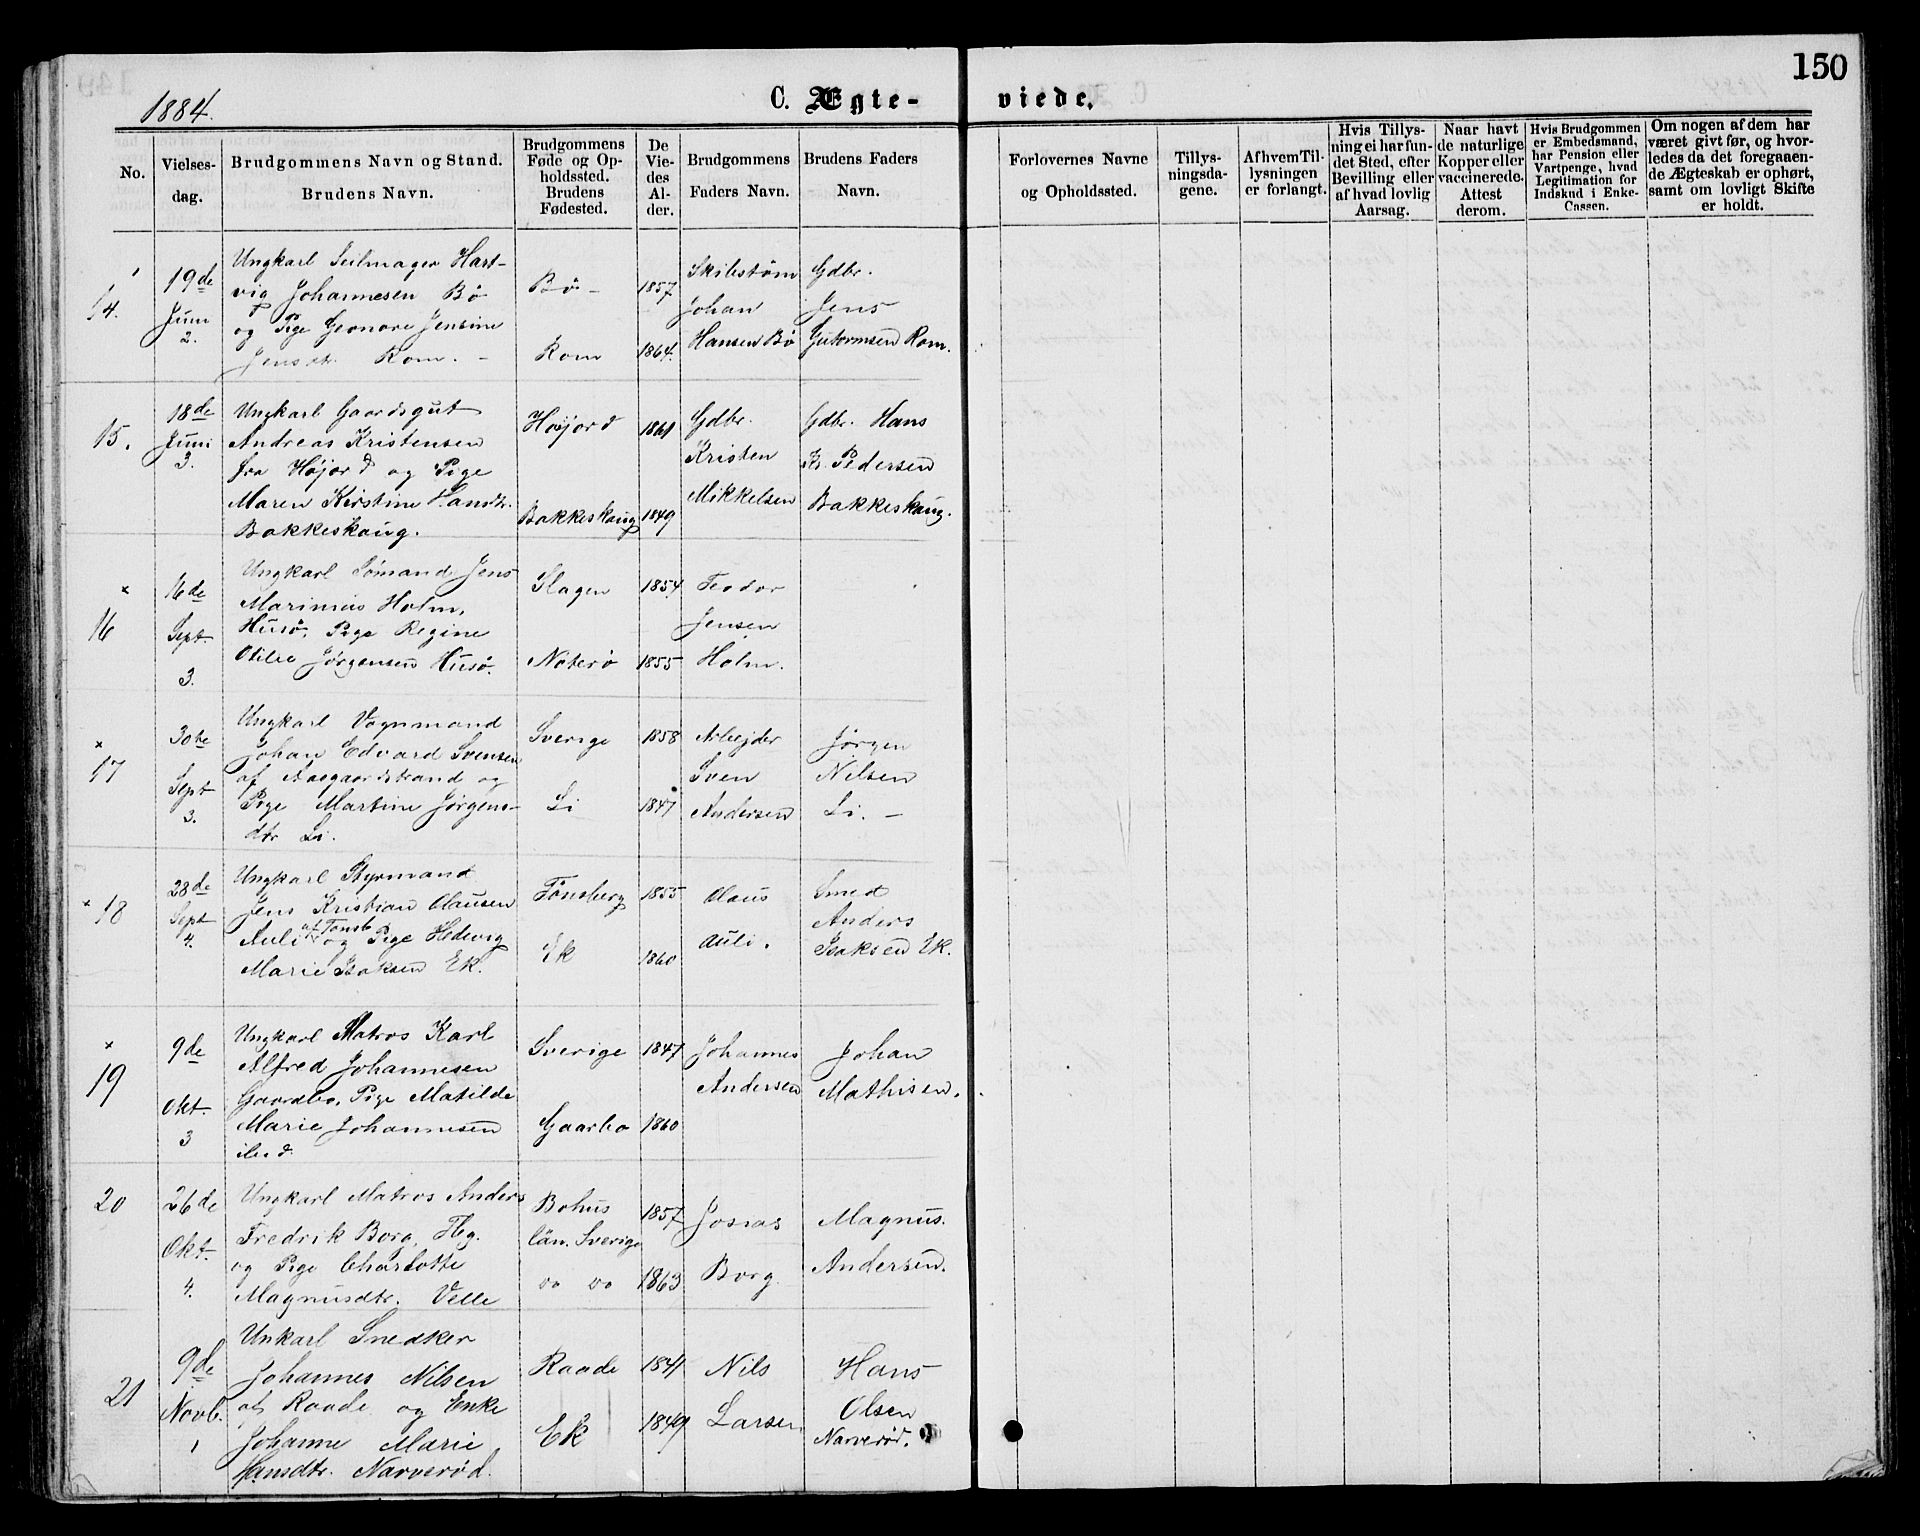 150
1884.
C. Ægteviede,
No.
Vielsesdag.
Brudgommens Navn og Stand.
Brudens Navn.
Brudgommens Føde og Opholdssted. Brudens Fødested.
De Viedes Alder.
Brudgommens Faders Navn.
Brudens Faders Navn.
Forlovernes Navne og Opholdssted.
Tillysningsdagene.
Af hvem Tillysningen er forlangt.
Hvis Tillysning ei har fundet Sted, efter Bevilling eller af hvad lovlig Aarsag.
Naar havt de naturlige Kopper eller vaccinerede. Attest derom.
Hvis Brudgommen er Embedsmand, har Pension eller Vartpenge, hvad Legitimation for Indskud i Enke-Cassen.
Om nogen af dem har været givt før, og hvorledes da det foregaaende Ægteskab er ophørt, samt om lovligt Skifte er holdt.
14.
19de
Juni
2.
Ungkarl Seilmager Hart-
vig Johannesen Bø
og Pige Jensine
Jensdtr. Rom. -
Bø -
Rom
1857
1864.
Skibstøm
Johan
Hansen Bø
Gdbr.
Jens
Gutormsen Rom.
15.
18de
Juni
3.
Ungkarl Gaardsgut
Andreas Kristensen
fra Højord og Pige
Maren Kirstine Hansdtr.
Bakkeskaug.
Højord
Bakkeskaug
1861
1849
Gdbr.
Kristen
Mikkelsen
Gdbr. Hans
Kr. Pedersen
Bakkeskaug.
16
16de
Sept.
3.
Ungkarl Sømand Jens
Marinius Holm,
Husø, Pige Regine
Otilie Jørgensen Husø.
Slagen
Noterø
1854
1855
Teodor
Jensen
Holm.
17
30te
Sept
3.
Ungkarl Vognmand
Johan Edvard Svensen
af Aasgaardstrand og
Pige Martine Jørgens-
dtr Li.
Sverige
Li
1858
1847
Arbejder
Sven
Andersen
Jørgen
Nilsen
Li. -
18
28de
Sept
4.
Ungkarl Styrmand
Jens Kristian Olausen
Auli af Tønsb og Pige Hedevig
Marie Isaksen Ek.
Tønsberg
Ek
1855
1860
Olaus
Auli.
Smed
Anders
Isaksen Ek.
19
9de
Okt.
3
Ungkarl Matros Karl
Alfred Johannesen
Gaardbo, Pige Matilde
Marie Johannesen
ibid.
Sverige
Gaarbo
1847
1860
Johannes
Andersen
Johan
Mathisen.
20
26de
Okt.
4.
Ungkarl Matros Anders
Fredrik Borg, Tbg.
og Pige Charlotte
Magnusdtr. Velle
Bohus
län. Sverige
1857
1863
Josias
Borg
Magnus.
Andersen.
21
9de
Novb.
1
Unkarl Snedker
Johannes Nilsen
af Raade og Enke
Johanne Marie
Hansdtr. Narverød.
Raade
Ek
1841
1849
Nils
Larsen
Hans
Olsen
Narverød.